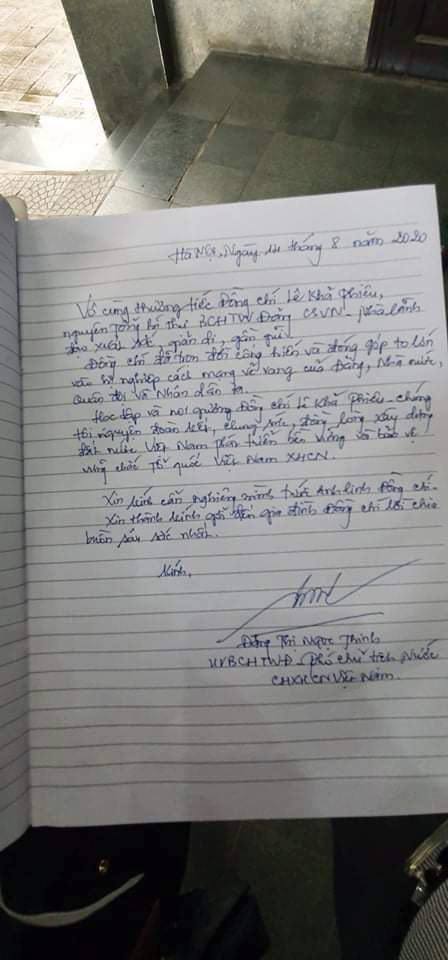 Hà Nội, Ngày 14 tháng 8 năm 2020
Vô cùng thương tiếc Đồng chí Lê Khả Phiêu,
nguyên Tổng Bí thư BCHTW Đảng CSVN - Nhà lãnh
đạo xuất sắc, giản dị, gần gũi
Đồng chí đã trọn đời cống hiến và đóng góp to lớn
vào sự nghiệp cách mạng vẻ vang của Đảng, Nhà nước,
Quân đội và Nhân dân ta.
Học tập và noi gương Đồng chí Lê Khả Phiêu - chúng
tôi nguyện đoàn kết, chung sức, đồng lòng xây dựng
đất nước Việt Nam phát triển bền vững và bảo vệ
vững chắc Tổ quốc Việt Nam XHCN.
Xin kính cẩn nghiêng mình trước Anh linh Đồng chí.
Xin thành kính gửi đến gia đình Đồng chí lời chia
buồn sâu sắc nhất.
Kính,
Đặng Thị Ngọc Thịnh
UVBCHTWĐ. Phó Chủ tịch Nước
CHXHCN Việt Nam.